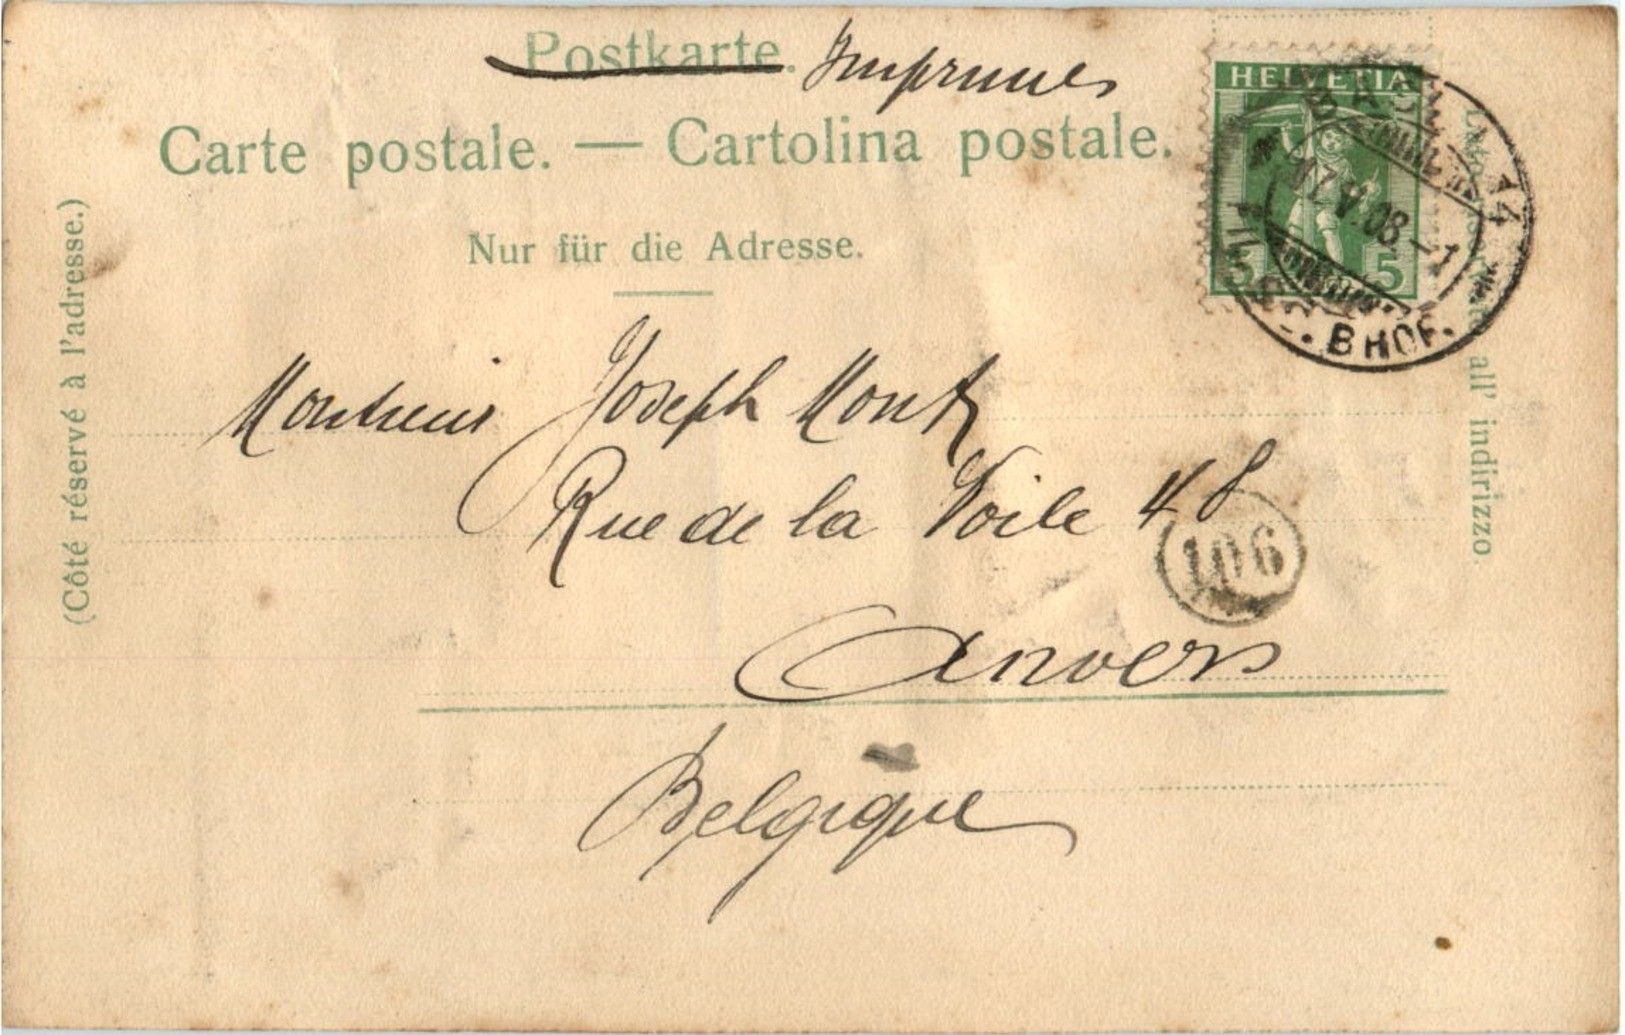 Postkarte. Imprimés
Carte postale. — Cartolina postale.
Nur für die Adresse.
(Côté réservé à l'adresse.)
all' indirizzo.
HELVETIA
5 5
08.-1
BHOF.
Monsieur Joseph Mont
Rue de la Voile 48
106
Anvers
Belgique